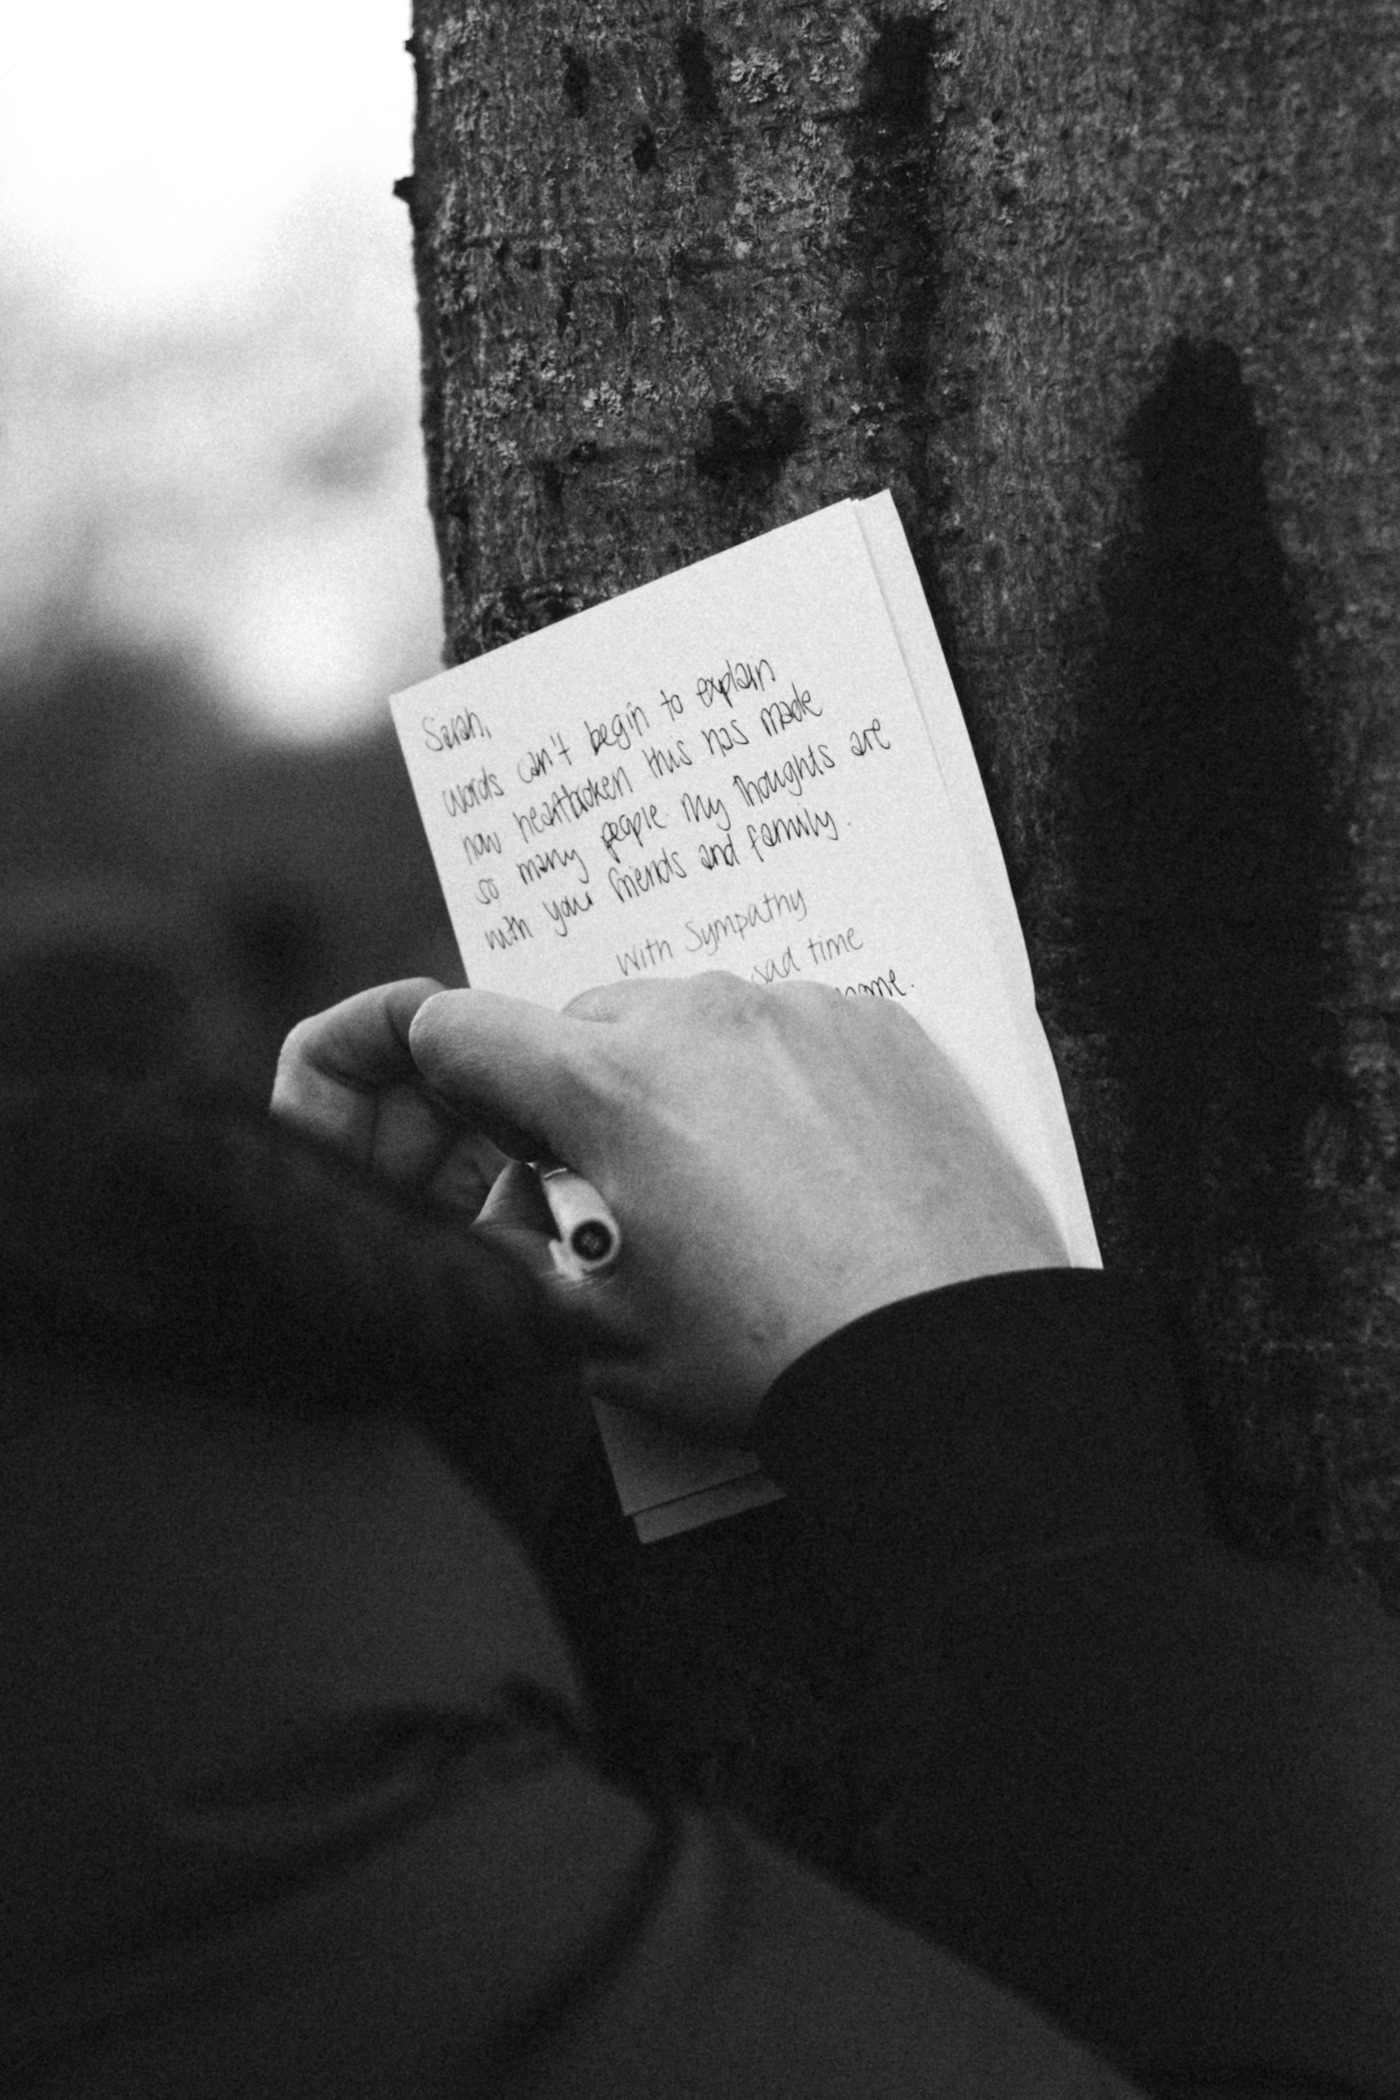 Sarah,
words can't begin to explain
how heartbroken this has made
so many people. My thoughts are
with your friends and family.
With Sympathy
sad time
home.